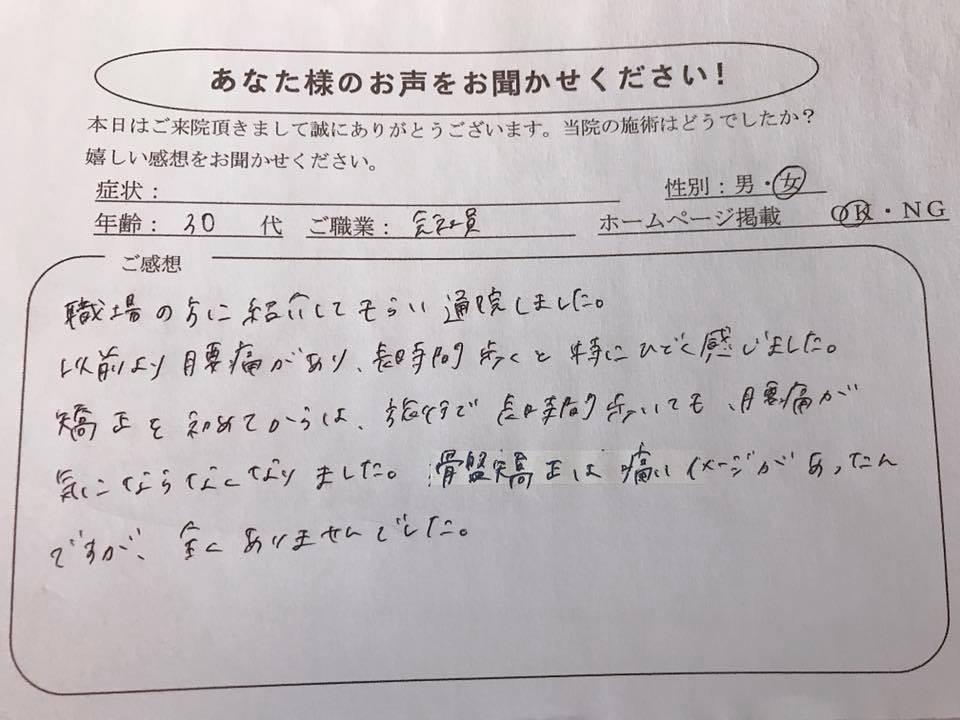 あなた様のお声をお聞かせください!
本日はご来院頂きまして誠にありがとうございます。当院の施術はどうでしたか?
嬉しい感想をお聞かせください。
症状: 性別:男・女
年齢: 30 代 ご職業: 会社員 ホームページ掲載 OK・NG
ご感想
職場の方に紹介してもらい通院しました。
以前より腰痛があり、長時間歩くと特にひどく感じました。
矯正を初めてからは、旅行で長時間歩いても、腰痛が
気にならなくなりました。骨盤矯正は痛いイメージがあったん
ですが、全くありませんでした。